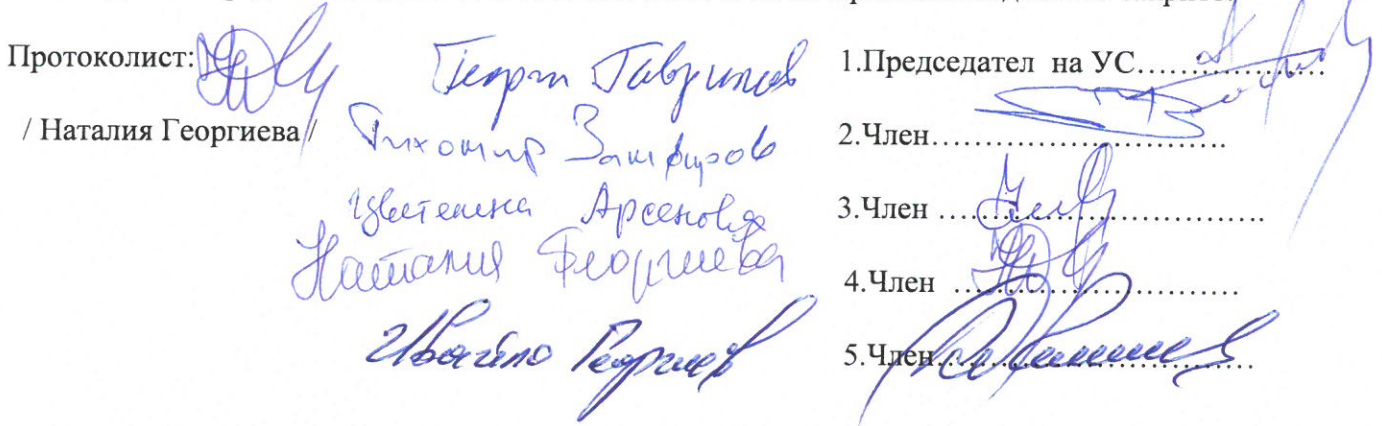 Протоколист:
/ Наталия Георгиева /
Георги Гаврилов
Тихомир Замфиров
Цветелина Арсенова
Наталия Георгиева
Ивайло Георгиев
1.Председател на УС..................
2.Член..............................
3.Член .................................
4.Член .............................
5.Член................................